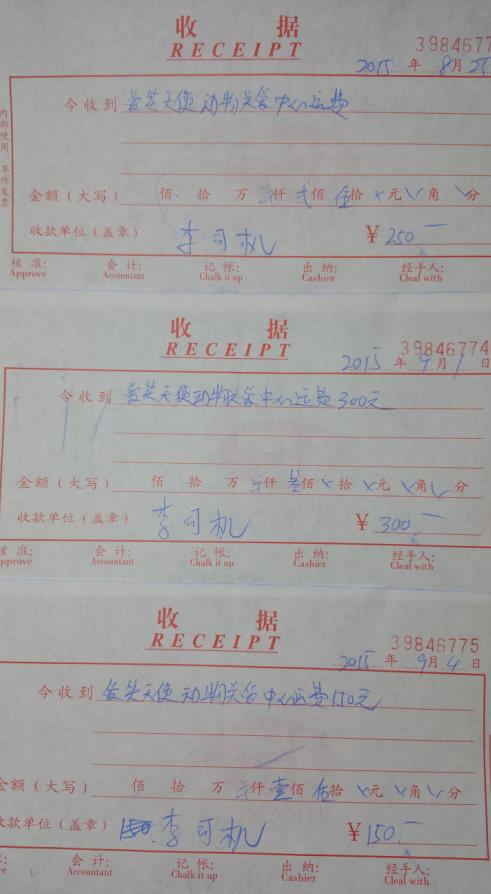 收 据
RECEIPT
3984677
2015 年 8 月 25
今收到 天使动物关爱中心运费
金额（大写） 佰 拾 万 仟 贰佰 伍拾 元 角 分
收款单位（盖章） 李司机 ￥250.—
核 准: 会 计: 记 帐: 出 纳: 经手人:
Approve Accountant Chalk it up Cashier Cleal with
内部使用，不作发票
收 据
RECEIPT
39846774
2015 年 9 月 1 日
今收到 天使动物关爱中心运费300元
金额（大写） 佰 拾 万 仟 叁佰 拾 元 角 分
收款单位（盖章） 李司机 ￥300.—
核 准: 会 计: 记 帐: 出 纳: 经手人:
pprove Accountant Chalk it up Cashier Cleal with
收 据
RECEIPT
39846775
2015 年 9 月 4 日
今收到 天使动物关爱中心运费150元
金额（大写） 佰 拾 万 仟 壹佰 伍拾 元 角 分
收款单位（盖章） 李司机 ￥150.—
会 计: 记 帐: 出 纳: 经手人:
Accountant Chalk it up Cashier Cleal with